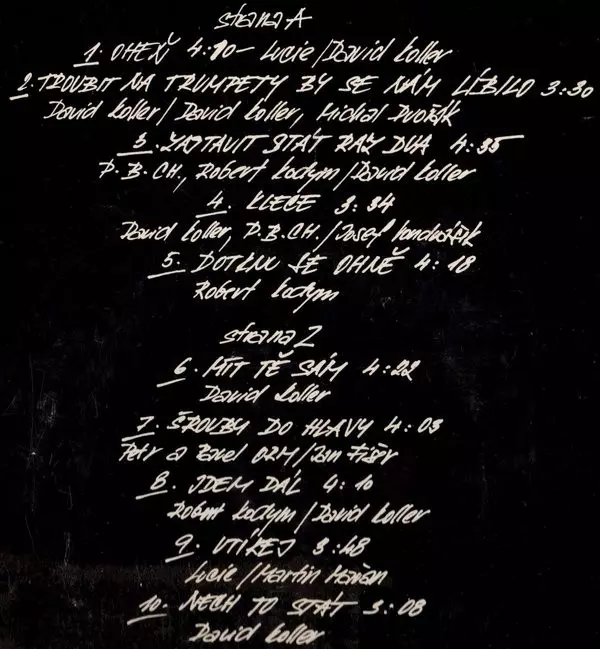 strana A
1. OHEŇ 4:10 - Lucie/David Koller
2. TROUBIT NA TRUMPETY BY SE NÁM LÍBILO 3:30
David Koller/David Koller, Michal Dvořák
3. ZASTAVIT STÁT RAZ DVA 4:35
P.B.CH., Robert Kodym/David Koller
4. KLECE 3:34
David Koller, P.B.CH./Josef
5. DOTKNU SE OHNĚ 4:18
Robert Kodym
strana Z
6. MÍT TĚ SÁM 4:22
David Koller
7. ŠROUBY DO HLAVY 4:03
Petr a Pavel ORM/Jan Fišer
8. JDEM DÁL 4:10
Robert Kodym/David Koller
9. UTÍKEJ 3:48
Lucie/Martin
10. NECH TO STÁT 3:08
David Koller